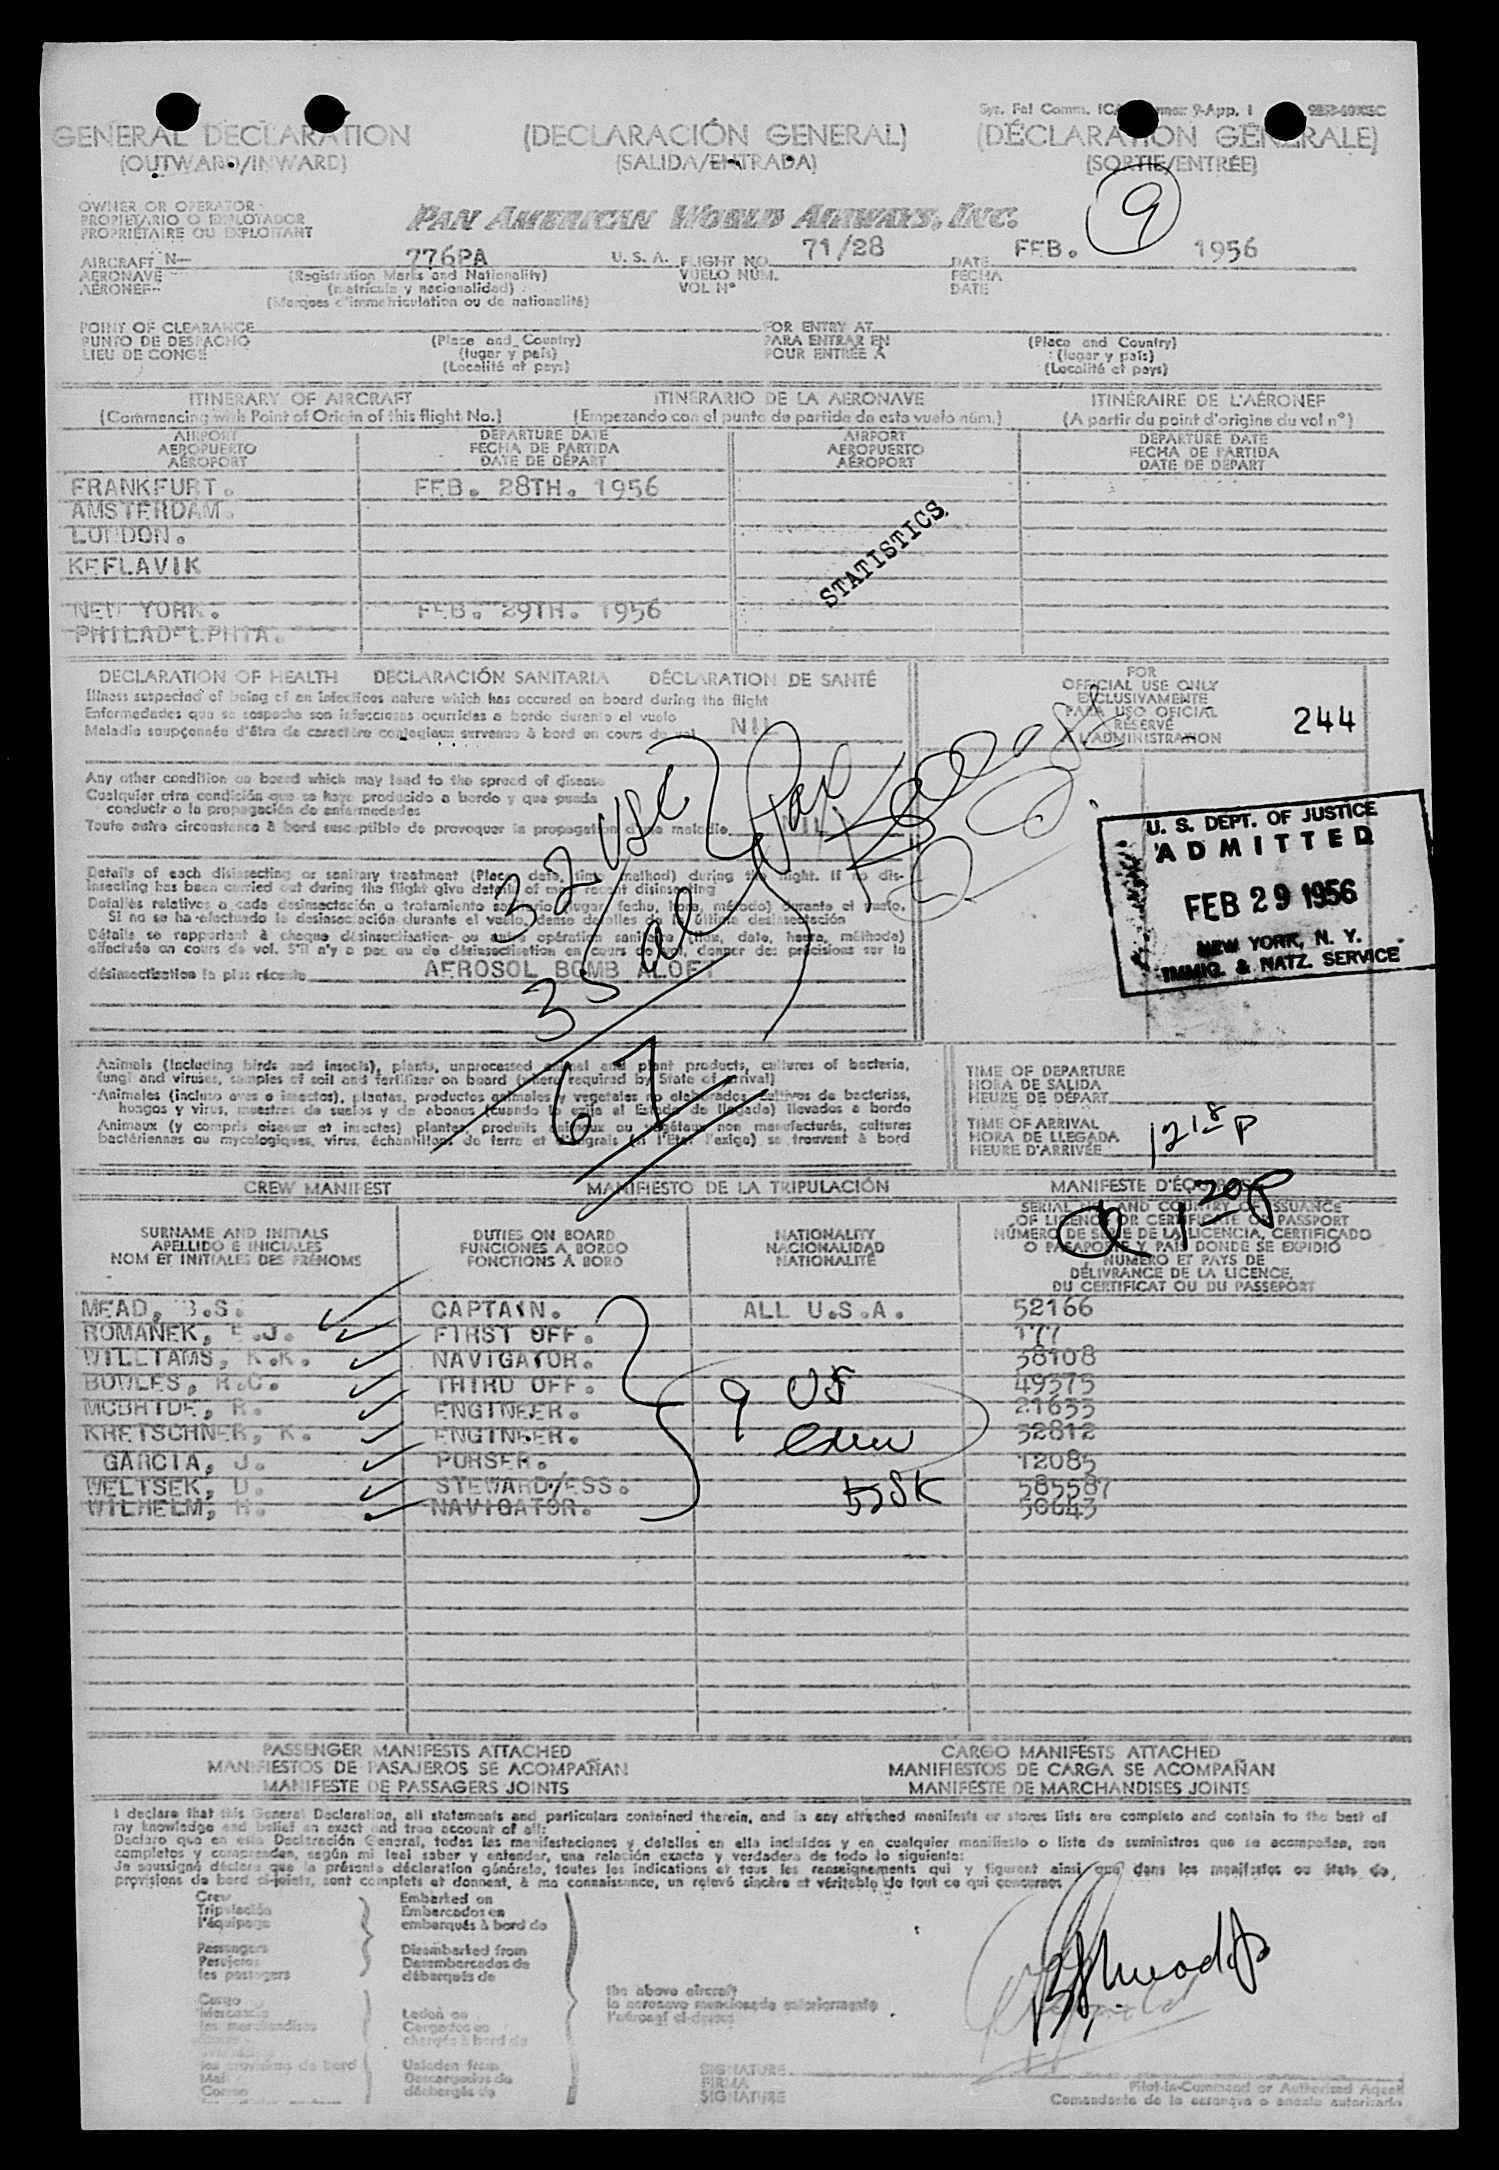 GENERAL DECLARATION (DECLARACIÓN GENERAL) (DÉCLARATION GÉNÉRALE)
(OUTWARD/INWARD) (SALIDA/ENTRADA) (SORTIE/ENTRÉE)
9
OWNER OR OPERATOR
PROPIETARIO O EXPLOTADOR
PROPRIÉTAIRE OU EXPLOITANT
PAN AMERICAN WORLD AIRWAYS, INC.
AIRCRAFT N— 776PA U.S.A. FLIGHT NO. 71/28 DATE FEB. 1956
AERONAVE (Registration Marks and Nationality) VUELO NÚM. FECHA
AÉRONEF (matrícula y nacionalidad) VOL Nº DATE
(Marques d'immatriculation ou de nationalité)
POINT OF CLEARANCE FOR ENTRY AT
PUNTO DE DESPACHO (Place and Country) PARA ENTRAR EN (Place and Country)
LIEU DE CONGÉ (lugar y país) POUR ENTRÉE À (lugar y país)
(Localité et pays) (Localité et pays)
ITINERARY OF AIRCRAFT ITINERARIO DE LA AERONAVE ITINÉRAIRE DE L'AÉRONEF
(Commencing with Point of Origin of this flight No.) (Empezando con el punto de partida de esta vuelo núm.) (A partir du point d'origine du vol nº)
AIRPORT DEPARTURE DATE AIRPORT DEPARTURE DATE
AEROPUERTO FECHA DE PARTIDA AEROPUERTO FECHA DE PARTIDA
AÉROPORT DATE DE DÉPART AÉROPORT DATE DE DÉPART
FRANKFURT. FEB. 28TH. 1956
AMSTERDAM.
LONDON.
KEFLAVIK
NEW YORK. FEB. 29TH. 1956
PHILADELPHIA.
STATISTICS
DECLARATION OF HEALTH DECLARACIÓN SANITARIA DÉCLARATION DE SANTÉ
Illness suspected of being of an infectious nature which has occured on board during the flight
Enfermedades que se sospecha son infecciosas ocurridas a bordo durante el vuelo
Maladie soupçonnée d'être de caractère contagieux survenue à bord en cours de vol NIL
FOR
OFFICIAL USE ONLY
EXCLUSIVAMENTE
PARA USO OFICIAL
RÉSERVÉ
À L'ADMINISTRATION
244
Any other condition on board which may lead to the spread of disease
Cualquier otra condición que se haya producido a bordo y que pueda
conducir a la propagación de enfermedades
Toute autre circonstance à bord susceptible de provoquer la propagation d'une maladie
32 USC
35 al
67
U. S. DEPT. OF JUSTICE
ADMITTED
FEB 29 1956
NEW YORK, N. Y.
IMMIG. & NATZ. SERVICE
Details of each disinsecting or sanitary treatment (Place, date, time, method) during the flight. If no dis-
insecting has been carried out during the flight give details of most recent disinsecting
Detalles relativos a cada desinsectación o tratamiento sanitario (lugar, fecha, hora, método) durante el vuelo.
Si no se ha efectuado la desinsectación durante el vuelo, dense detalles de la última desinsectación
Détails se rapportant à chaque désinsectisation ou autre opération sanitaire (lieu, date, heure, méthode)
effectuée en cours de vol. S'il n'y a pas eu de désinsectisation en cours de vol, donner des précisions sur la
désinsectisation la plus récente AEROSOL BOMB ALOFT
Animals (including birds and insects), plants, unprocessed animal and plant products, cultures of bacteria,
fungi and viruses, samples of soil and fertilizer on board (where required by State of arrival)
Animales (incluso aves e insectos), plantas, productos animales y vegetales no elaborados, cultivos de bacterias,
hongos y virus, muestras de suelos y de abonos (cuando lo exija el Estado de llegada) llevados a bordo
Animaux (y compris oiseaux et insectes) plantes, produits animaux ou végétaux non manufacturés, cultures
bactériennes ou mycologiques, virus, échantillons de terre et d'engrais (si l'État l'exige) se trouvent à bord
TIME OF DEPARTURE
HORA DE SALIDA
HEURE DE DÉPART
TIME OF ARRIVAL
HORA DE LLEGADA
HEURE D'ARRIVÉE 12 18 P
1 20 P
CREW MANIFEST MANIFIESTO DE LA TRIPULACIÓN MANIFESTE D'ÉQUIPAGE
SURNAME AND INITIALS
APELLIDO E INICIALES
NOM ET INITIALES DES PRÉNOMS
DUTIES ON BOARD
FUNCIONES A BORDO
FONCTIONS À BORD
NATIONALITY
NACIONALIDAD
NATIONALITÉ
SERIAL AND COUNTRY OF ISSUANCE
OF LICENCE OR CERTIFICATE OR PASSPORT
NÚMERO DE SERIE DE LA LICENCIA, CERTIFICADO
O PASAPORTE Y PAÍS DONDE SE EXPIDIÓ
NUMÉRO ET PAYS DE
DÉLIVRANCE DE LA LICENCE,
DU CERTIFICAT OU DU PASSEPORT
MEAD, B.S. CAPTAIN. ALL U.S.A. 52166
ROMANEK, E.J. FIRST OFF. 177
WILLIAMS, K.K. NAVIGATOR. 58108
BOWLES, R.C. THIRD OFF. 49575
MCBRIDE, R. ENGINEER. 21633
KRETSCHNER, K. ENGINEER. 52812
GARCIA, J. PURSER. 12085
WELTSEK, D. STEWARD/ESS. 585587
WILHELM, H. NAVIGATOR. 50643
9 US
crew
PASSENGER MANIFESTS ATTACHED CARGO MANIFESTS ATTACHED
MANIFIESTOS DE PASAJEROS SE ACOMPAÑAN MANIFIESTOS DE CARGA SE ACOMPAÑAN
MANIFESTE DE PASSAGERS JOINTS MANIFESTE DE MARCHANDISES JOINTS
I declare that this General Declaration, all statements and particulars contained therein, and in any attached manifests or stores lists are complete and contain to the best of
my knowledge and belief an exact and true account of all:
Declaro que en esta Declaración General, todas las manifestaciones y detalles en ella incluidos y en cualquier manifiesto o lista de suministros que se acompañan, son
completos y comprenden, según mi leal saber y entender, una relación exacta y verdadera de todo lo siguiente:
Je soussigné déclare que la présente déclaration générale, toutes les indications et tous les renseignements qui y figurent ainsi que dans les manifestes ou états de
provisions de bord ci-joints, sont complets et donnent, à ma connaissance, un relevé sincère et véritable de tout ce qui concerne:
Crew Embarked on
Tripulación Embarcados en
l'équipage embarqués à bord de
Passengers Disembarked from
Pasajeros Desembarcados de
les passagers débarqués de
Cargo the above aircraft
Mercancía Laden on la aeronave mencionada anteriormente
les marchandises Cargados en l'aéronef ci-dessus
chargés à bord de
les provisions de bord Unladen from
Mail Descargados de
Correo déchargés de
SIGNATURE
FIRMA
SIGNATURE
Pilot-in-Command or Authorized Agent
Comandante de la aeronave o agente autorizado